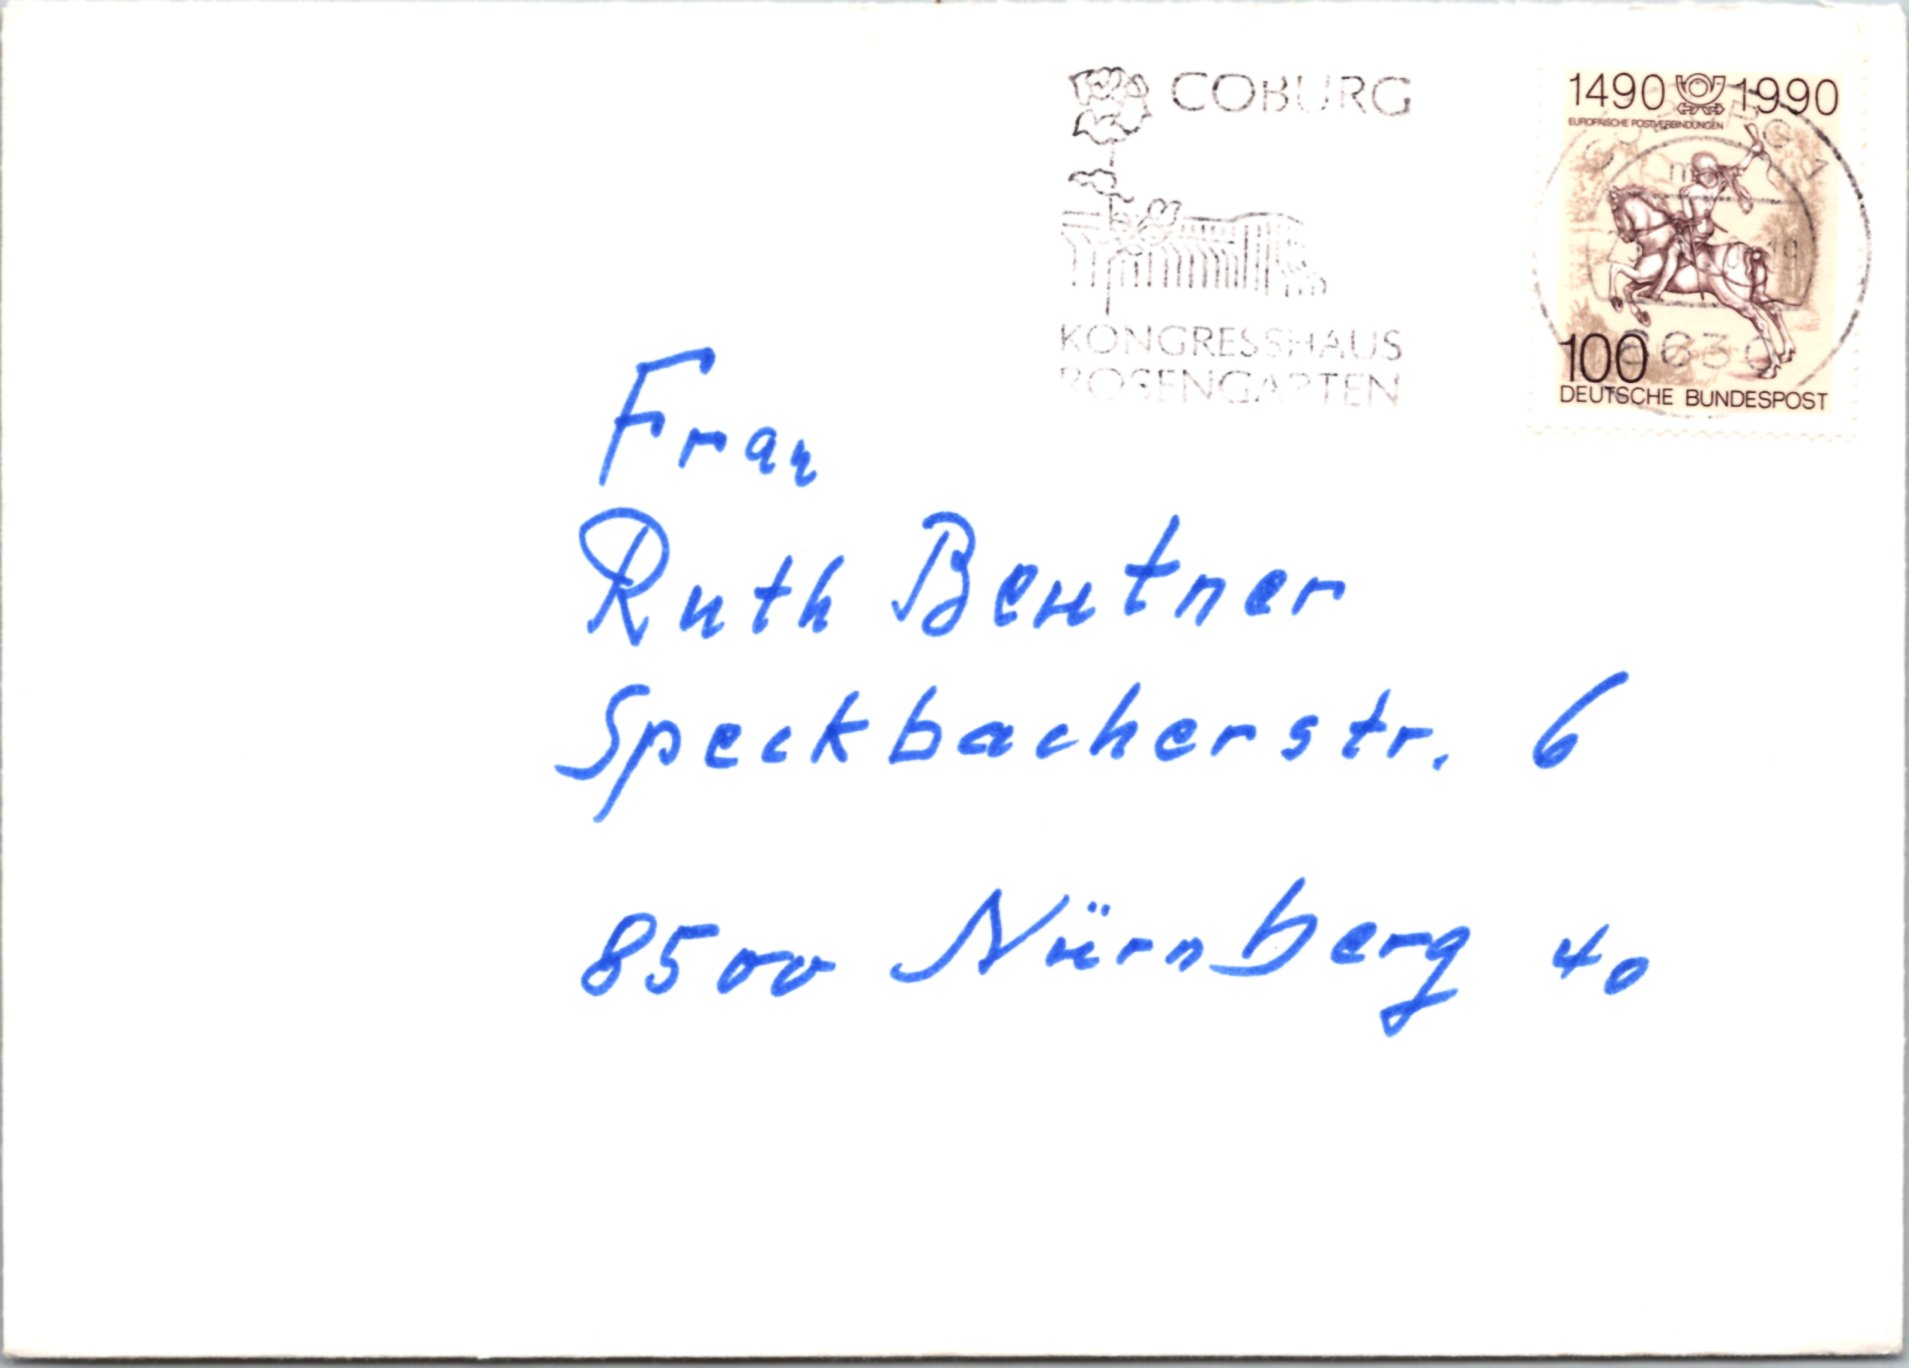 COBURG
KONGRESSHAUS
ROSENGARTEN
1490 1990
EUROPÄISCHE POSTVERBINDUNGEN
100
DEUTSCHE BUNDESPOST
Frau
Ruth Beutner
Speckbacherstr. 6
8500 Nürnberg 40